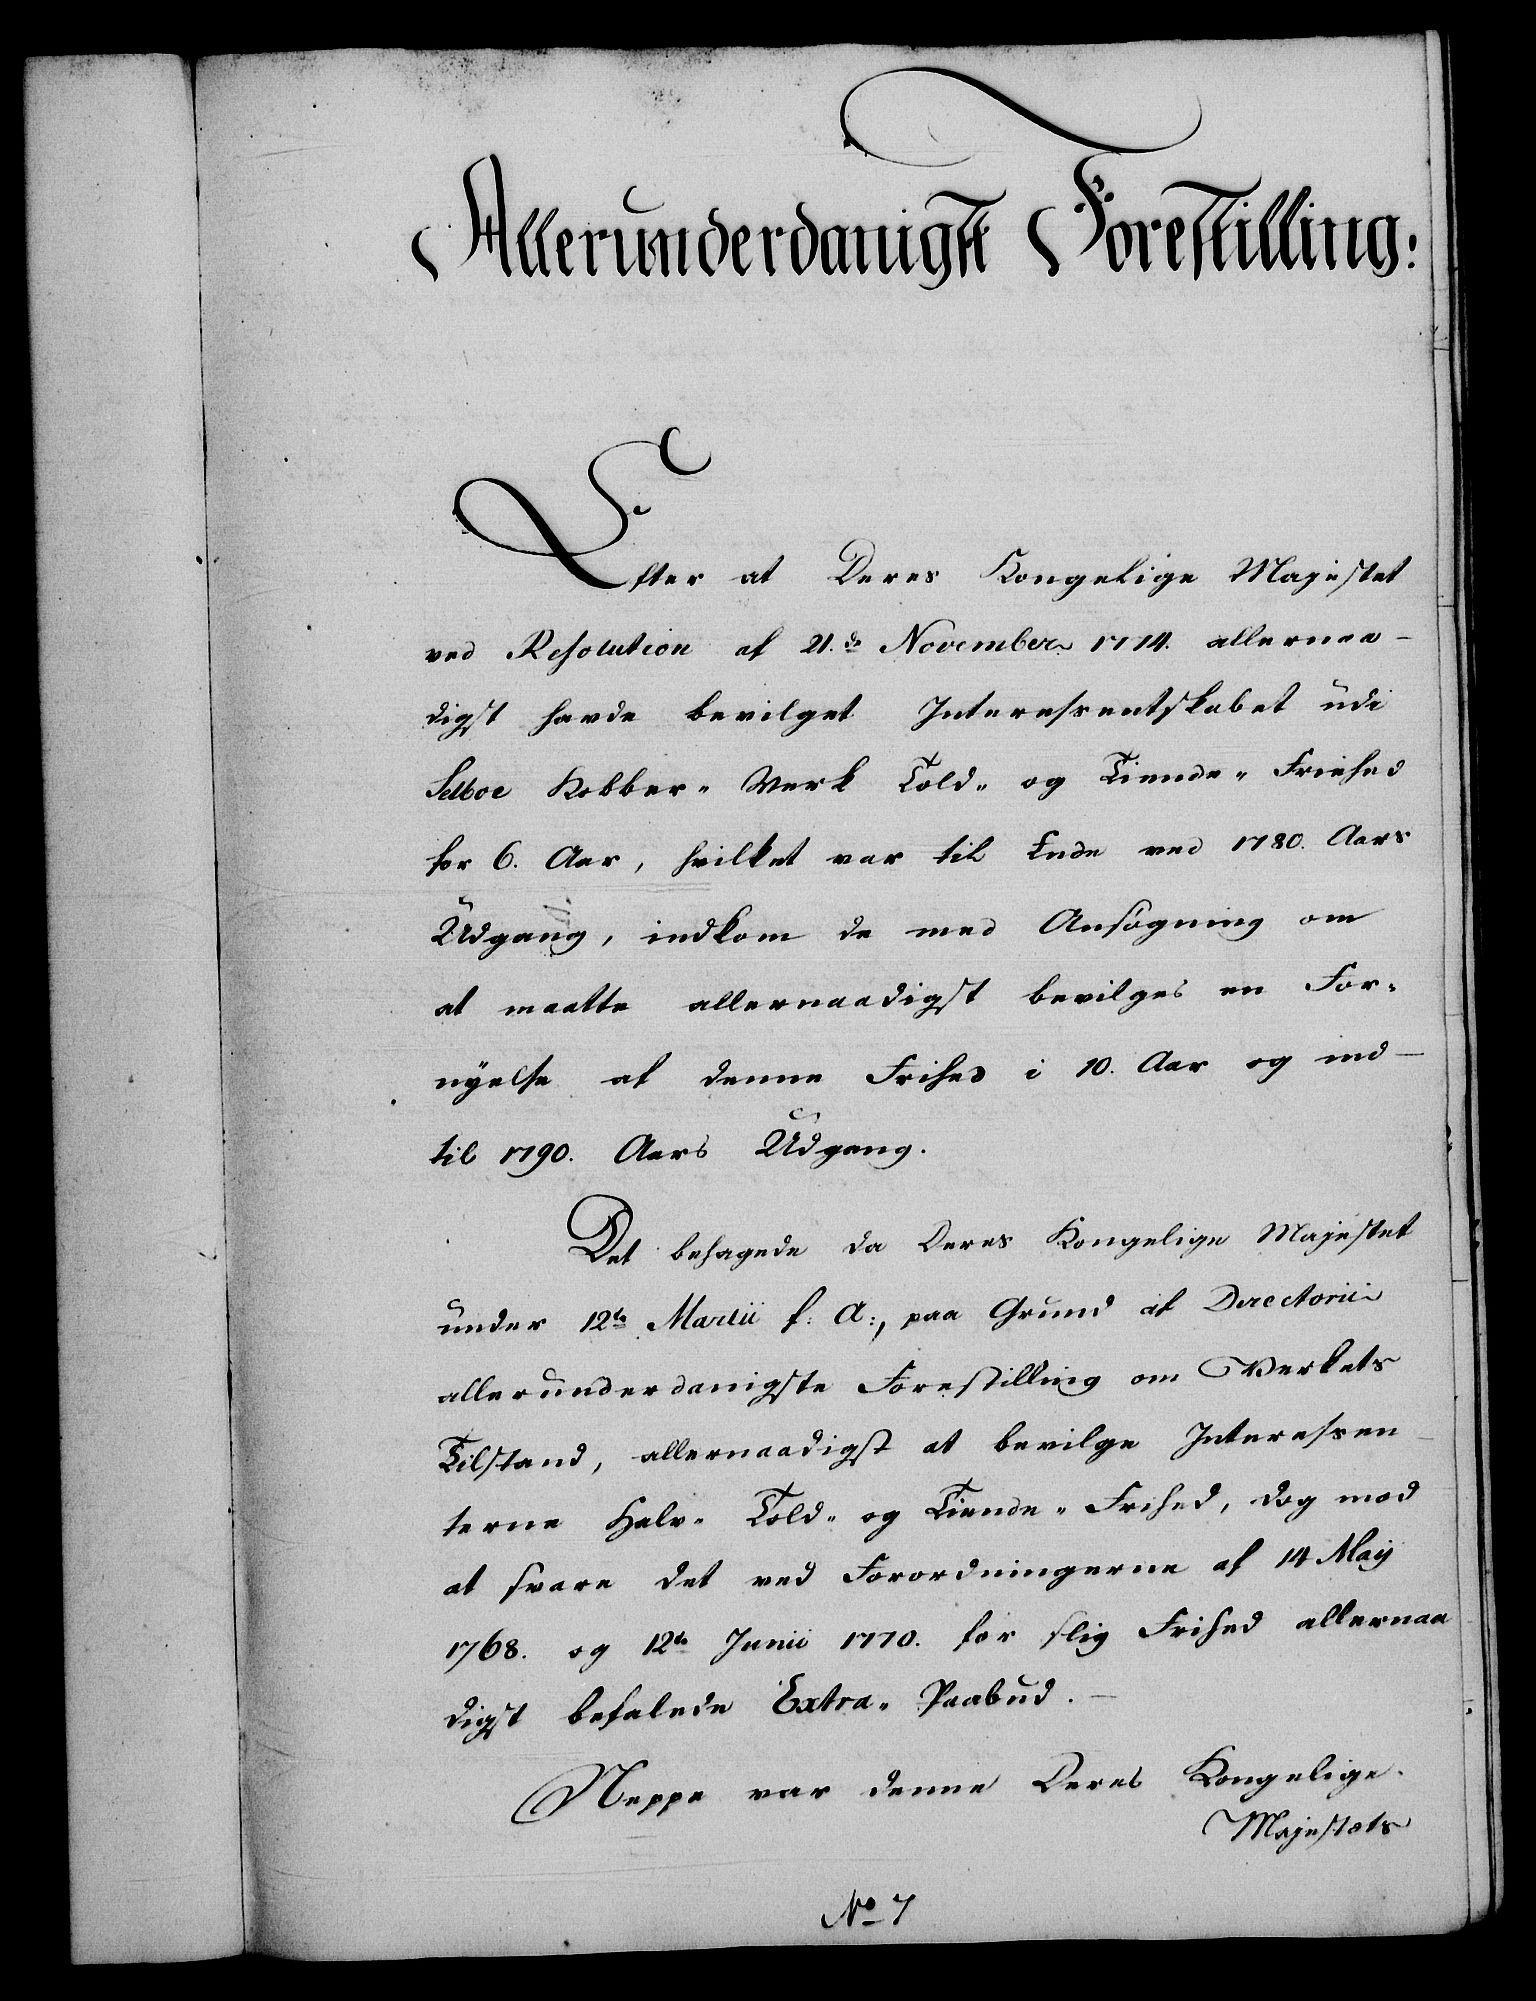 Allerunderdanigst Forestilling:
Efter at Deres Kongelige Majestet
ved Resolution af 21.de November 1774. allernaa-
digst havde bevilget Interessentskabet udi
Selboe Kobber- Verk Told- og Tiende- Friehed
for 6. Aar, hvilket var til Ende ved 1780. Aars
Udgang, indkom de med Ansøgning om
at maatte allernaadigst bevilges en For-
nyelse af denne Frihed i 10. Aar og ind-
til 1790. Aars Udgang.
Det behagede da Deres Kongelige Majestet
under 12te Martii f: A:, paa Grund af Directorii
allerunderdanigste Forestilling om Verkets
Tilstand, allernaadigst at bevilge Interessen-
terne Halv- Told- og Tiende- Frihed, dog mod
at svare det ved Forordningerne af 14 Maij
1768. og 12te Junii 1770. for slig Frihed allernaa
digst befalede Extra- Paabud.-
Neppe var denne Deres Kongelige
Majestets
No 7